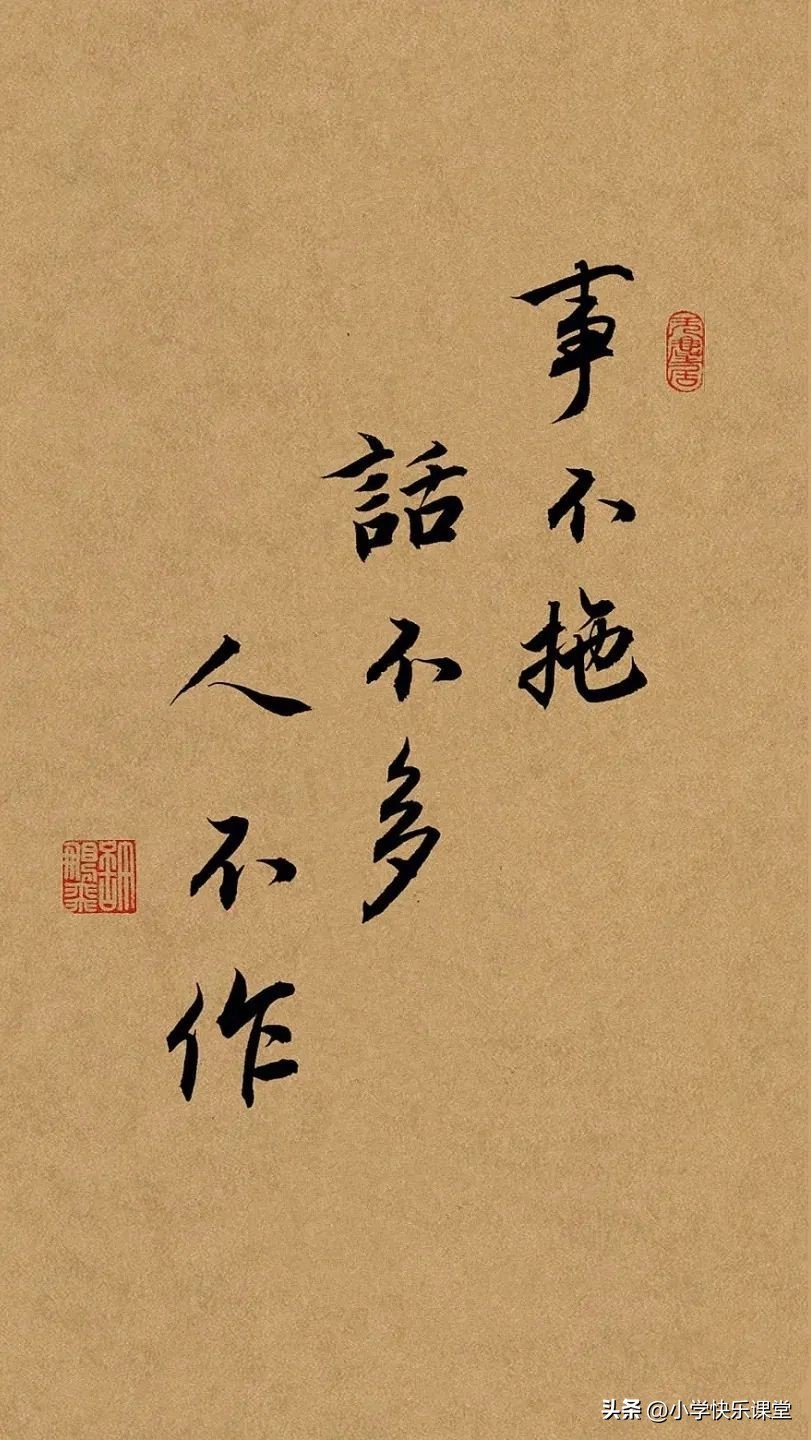 事不拖
話不多
人不作
头条 @小学快乐课堂